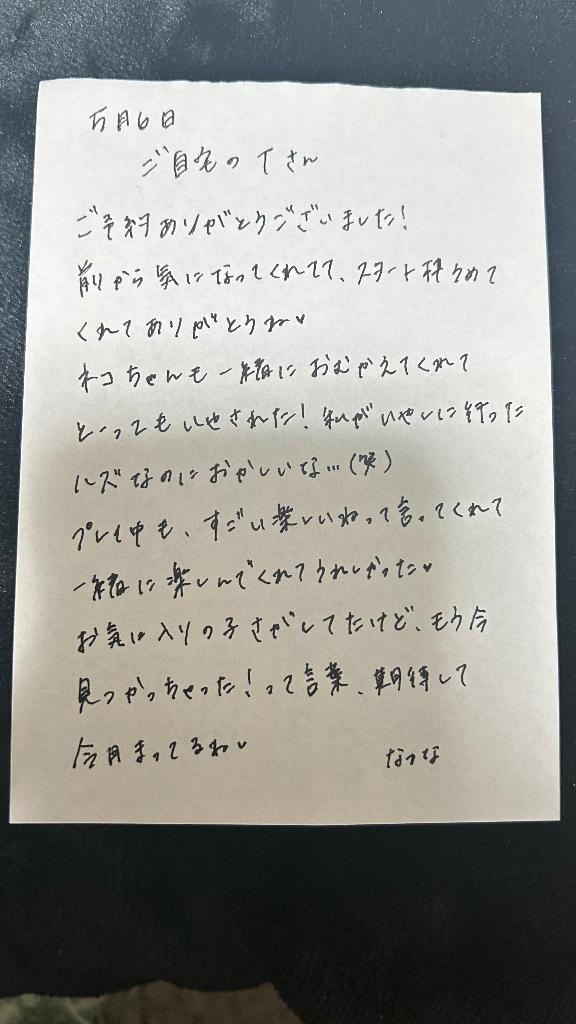 5月6日
ご自宅のTさん
ご予約ありがとうございました!
前から気になってくれてて、スタート枠うめて
くれてありがとうね♥
ネコちゃんも一緒におむかえてくれて
とーってもいやされた!私がいやしに行った
ハズなのにおかしいな…(笑)
プレイ中も、すごい楽しいねって言ってくれて
一緒に楽しんでくれてうれしかった♥
お気に入りの子さがしてたけど、もう今
見つかっちゃった!って言葉、期待して
今月まってるね♥
なつな